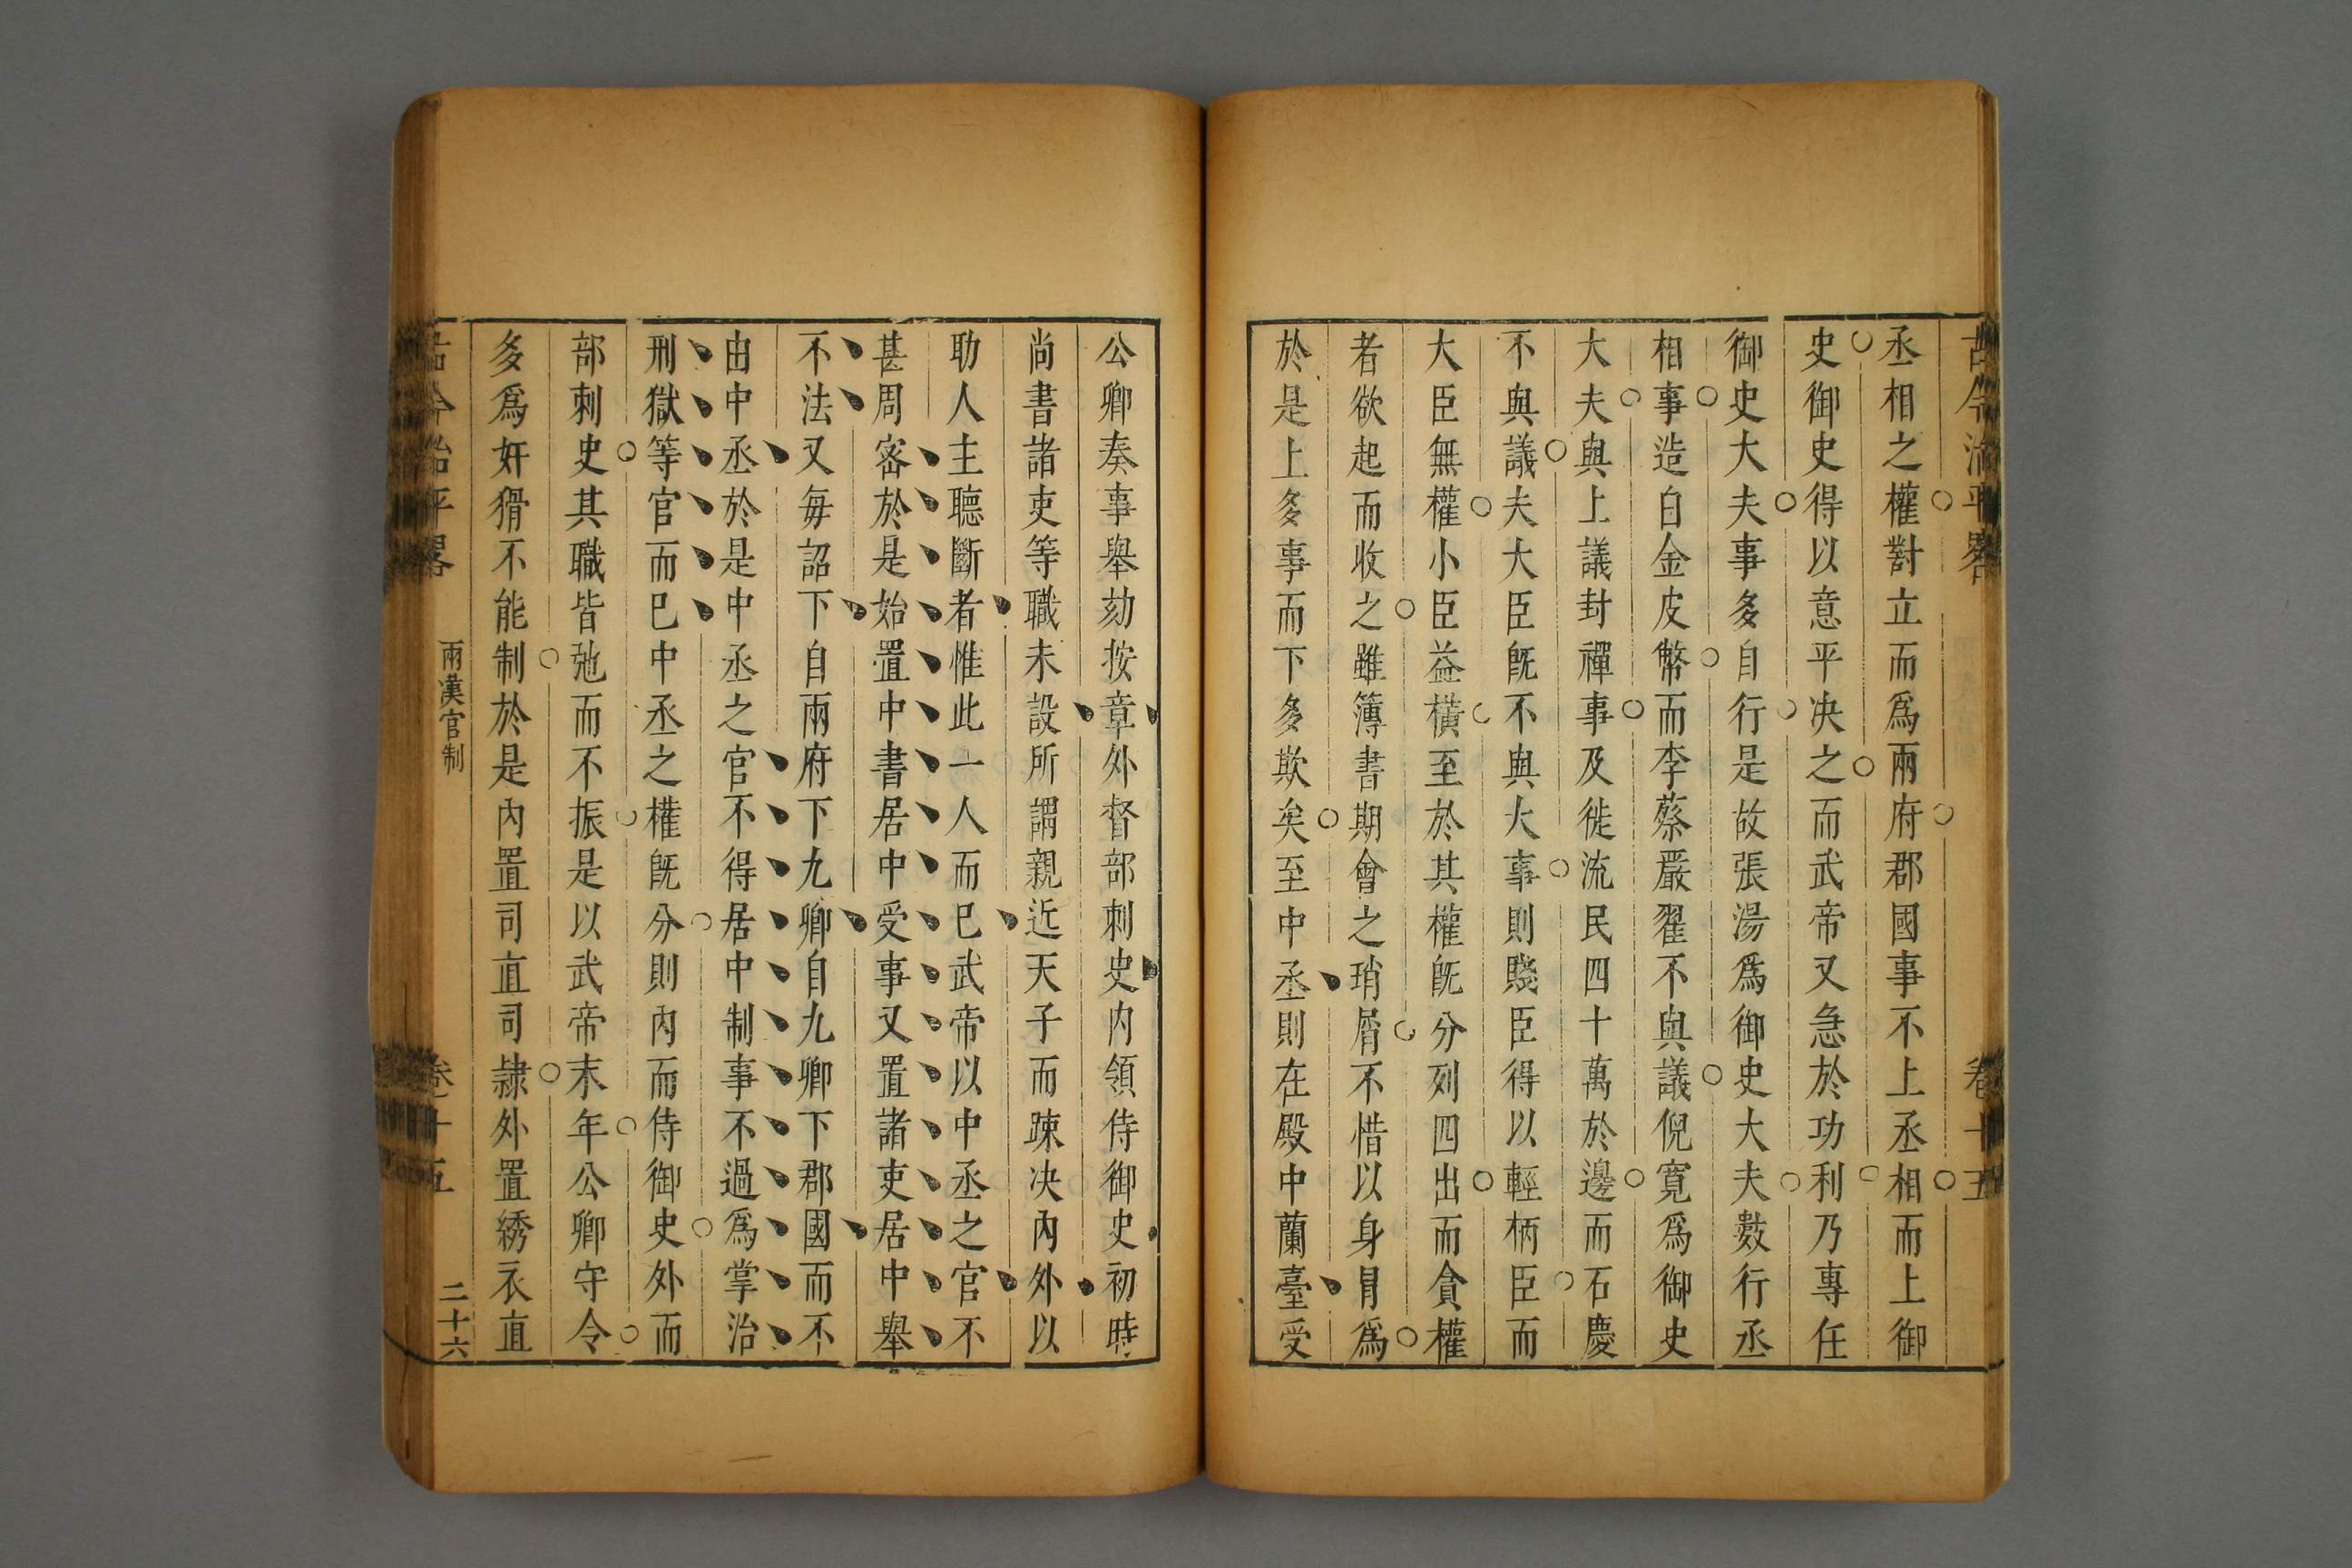 古今治平畧 卷十五
丞相之權對立而爲兩府郡國事不上丞相而上御
史御史得以意平决之而武帝又急於功利乃專任
御史大夫事多自行是故張湯爲御史大夫數行丞
相事造白金皮幣而李蔡嚴翟不與議倪寬爲御史
大夫與上議封禪事及徙流民四十萬於邊而石慶
不與議夫大臣旣不與大事則賤臣得以輕柄臣而
大臣無權小臣益橫至於其權旣分列四出而貪權
者欲起而收之雖簿書期會之瑣屑不惜以身冒爲
於是上多事而下多欺矣至中丞則在殿中蘭臺受
公卿奏事舉劾按章外督部刺史內領侍御史初時
尚書諸吏等職未設所謂親近天子而疎决內外以
助人主聽斷者惟此一人而巳武帝以中丞之官不
甚周密於是始置中書居中受事又置諸吏居中舉
不法又每詔下自兩府下九卿自九卿下郡國而不
由中丞於是中丞之官不得居中制事不過爲掌治
刑獄等官而巳中丞之權旣分則內而侍御史外而
部刺史其職皆弛而不振是以武帝末年公卿守令
多爲奸猾不能制於是內置司直司隷外置綉衣直
古今治平畧 兩漢官制 卷十五 二十六